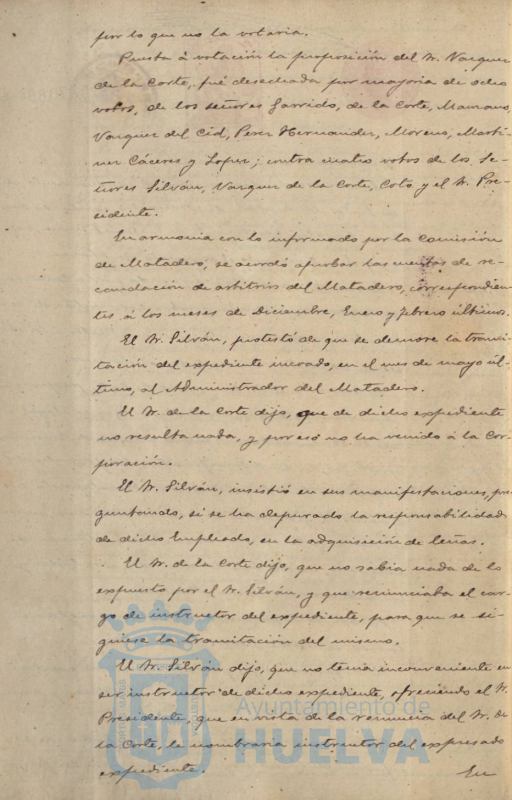 por lo que no la votaria.
Puesta á votación la proposición del Sr. Vazquez
de la Corte, fué desechada por mayoria de ocho
votos, de los señores Garrido, de la Corte, Mannano,
Vazquez del Cid, Perez Hernandez, Moreno, Marti-
nez Cáceres y Lopez; contra cuatro votos de los Se-
ñores Silván, Vazquez de la Corte, Coto y el Sr. Pre-
sidente.
En armonia con lo informado por la Comisión
de Matadero, se acordó aprobar las cuentas de re-
caudación de arbitrios del Matadero, correspondien-
tes á los meses de Diciembre, Enero y Febrero últimos.
El Sr. Silván, protestó de que se demore la trami-
tación del expediente incoado, en el mes de mayo úl-
timo, al Administrador del Matadero.
El Sr. de la Corte dijo, que de dicho expediente
no resulta nada, y por eso no ha venido á la Cor-
poración.
El Sr. Silván, insistió en sus manifestaciones, pre-
guntando, si se ha depurado la responsabilidad
de dicho Empleado, en la adquisición de leñas.
El Sr. de la Corte dijo, que no sabia nada de lo
expuesto por el Sr. Silván, y que renunciaba el car-
go de instructor del expediente, para que se si-
guiese la tramitación del mismo.
El Sr. Silván dijo, que no tenia inconveniente en
ser instructor de dicho expediente, ofreciendo el Sr.
Presidente, que en vista de la renuncia del Sr. de
la Corte, le nombraria instructor del expresado
expediente.
En
Ayuntamiento de
HUELVA